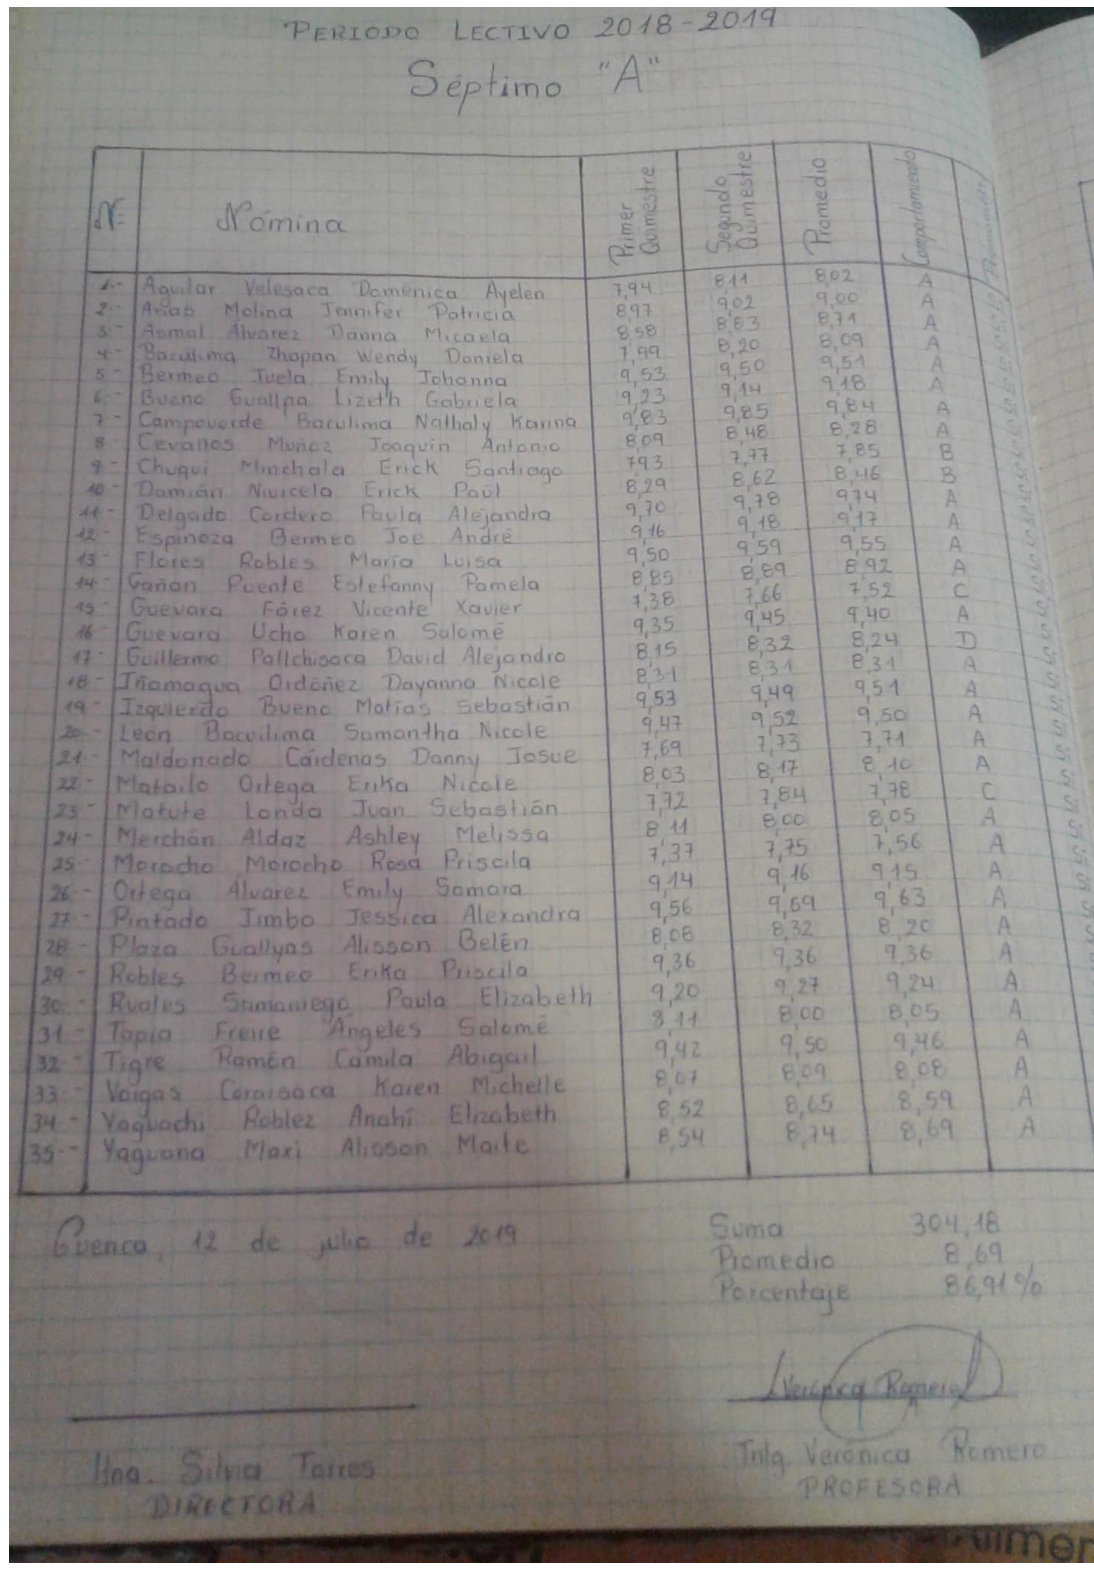 PERIODO LECTIVO 2018-2019
Séptimo "A"
N= Nómina Primer Quimestre Segundo Quimestre Promedio Comportamiento Promoción
1.- Aguilar Velesaca Doménica Ayelen 7,94 8,11 8,02 A
2.- Arias Molina Jennifer Patricia 8,97 9,02 9,00 A
3.- Asmal Alvarez Danna Micaela 8,58 8,83 8,71 A
4.- Baculima Zhapan Wendy Daniela 7,99 8,20 8,09 A
5.- Bermeo Juela Emily Johanna 9,53 9,50 9,51 A
6.- Bueno Guallpa Lizeth Gabriela 9,23 9,14 9,18 A
7.- Campoverde Baculima Nathaly Karina 9,83 9,85 9,84 A
8.- Cevallos Muñoz Joaquín Antonio 8,09 8,48 8,28 A
9.- Chuqui Minchala Erick Santiago 7,93 7,77 7,85 B
10.- Damián Nivicela Erick Paúl 8,29 8,62 8,46 B
11.- Delgado Cordero Paula Alejandra 9,70 9,78 9,74 A
12.- Espinoza Bermeo Joe André 9,16 9,18 9,17 A
13.- Flores Robles María Luisa 9,50 9,59 9,55 A
14.- Gañan Puente Estefanny Pamela 8,85 8,89 8,92 A
15.- Guevara Fárez Vicente Xavier 7,38 7,66 7,52 C
16.- Guevara Ucho Karen Salomé 9,35 9,45 9,40 A
17.- Guillermo Pallchisaca David Alejandro 8,15 8,32 8,24 D
18.- Iñamagua Ordóñez Dayanna Nicole 8,31 8,31 8,31 A
19.- Izquierdo Bueno Matías Sebastián 9,53 9,49 9,51 A
20.- León Bacuilima Samantha Nicole 9,47 9,52 9,50 A
21.- Maldonado Cárdenas Danny Josue 7,69 7,73 7,71 A
22.- Matailo Ortega Erika Nicole 8,03 8,17 8,10 A
23.- Matute Londa Juan Sebastián 7,72 7,84 7,78 C
24.- Merchán Aldaz Ashley Melissa 8,11 8,00 8,05 A
25.- Morocho Morocho Rosa Priscila 7,37 7,75 7,56 A
26.- Ortega Álvarez Emily Samara 9,14 9,16 9,15 A
27.- Pintado Jimbo Jessica Alexandra 9,56 9,69 9,63 A
28.- Plaza Guallyas Alisson Belén 8,08 8,32 8,20 A
29.- Robles Bermeo Erika Priscila 9,36 9,36 9,36 A
30.- Ruales Samaniego Paula Elizabeth 9,20 9,27 9,24 A
31.- Tapia Freire Ángeles Salomé 8,11 8,00 8,05 A
32.- Tigre Ramón Camila Abigail 9,42 9,50 9,46 A
33.- Vargas Coraisaca Karen Michelle 8,07 8,09 8,08 A
34.- Yaguachi Roblez Anahí Elizabeth 8,52 8,65 8,59 A
35.- Yaguana Maxi Alisson Maite 8,54 8,74 8,69 A
Cuenca, 12 de julio de 2019
Suma 304,18
Promedio 8,69
Porcentaje 86,91%
Verónica Romero
Hna. Silvia Torres
DIRECTORA
Tnlg. Verónica Romero
PROFESORA